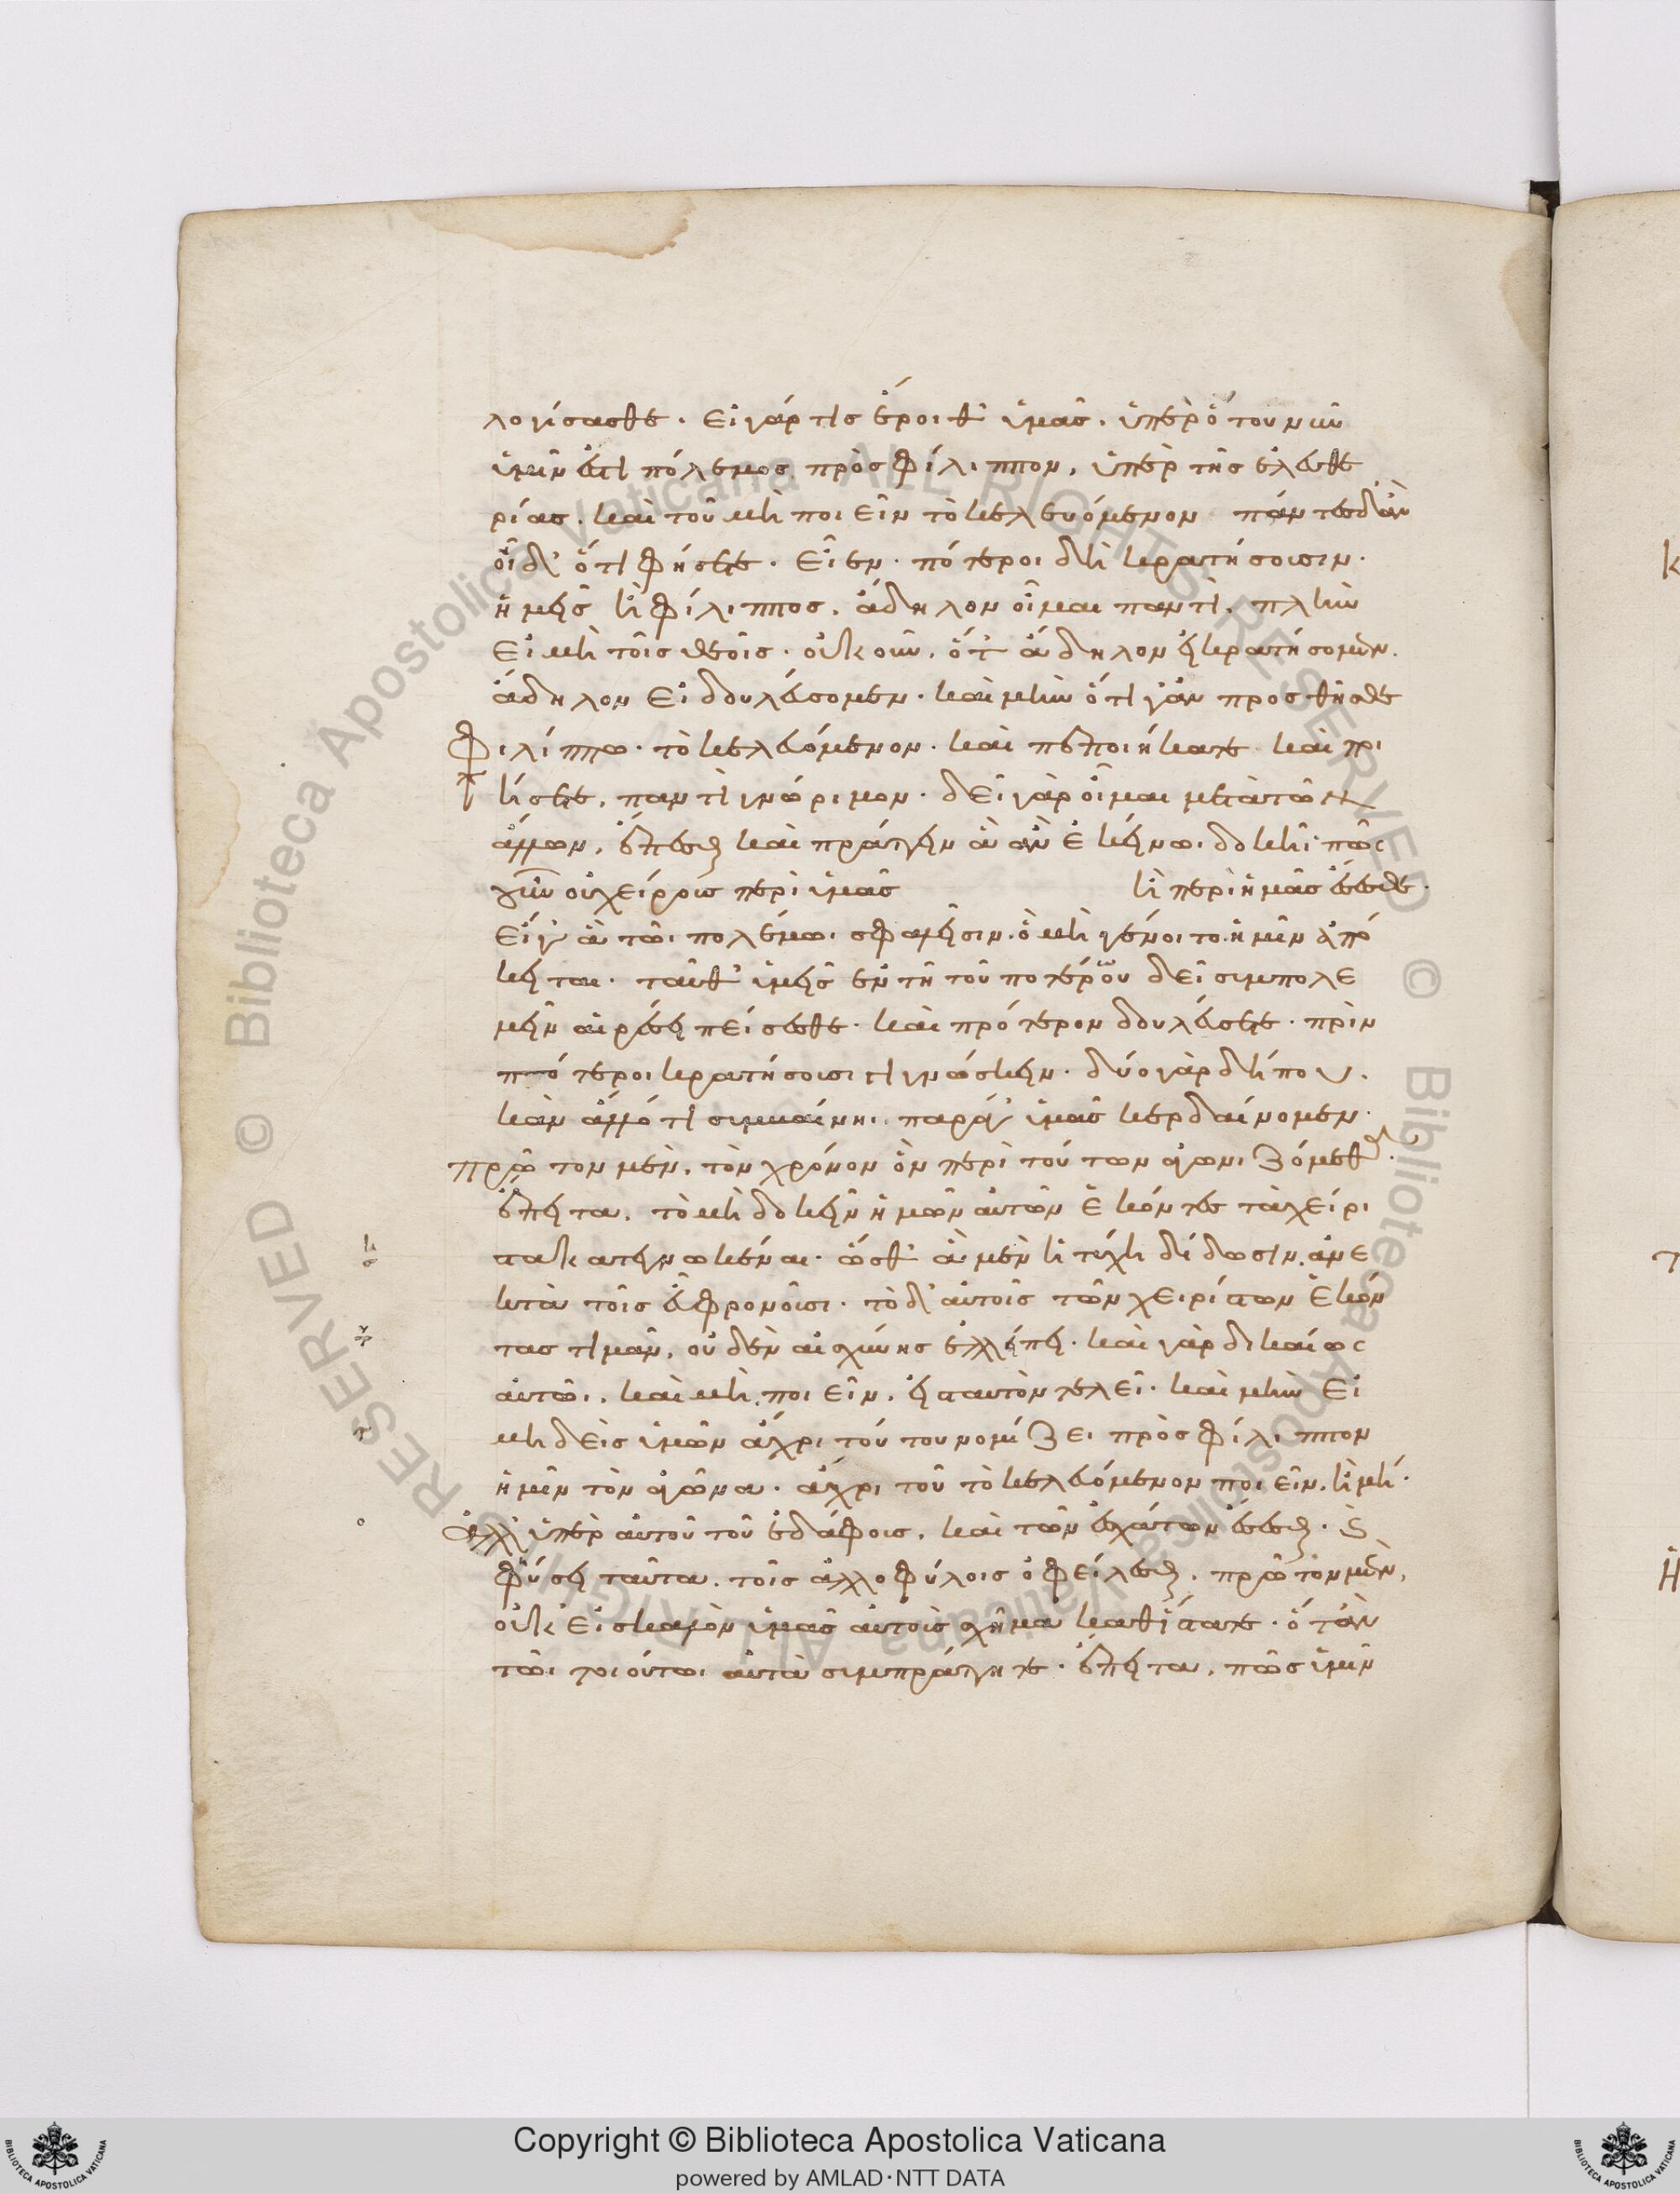 λογίσασθε. εἰ γάρ τις ἔροιθ' ὑμᾶς. ὑπὲρ ὅτου νῦν
ὑμῖν ἐστὶ πόλεμος πρὸς φίλιππον, ὑπὲρ τῆς ἐλευθε
ρίας. καὶ τοῦ μὴ ποιεῖν τὸ κελευόμενον πάντες ἂν
οἶδ' ὅτι φήσετε. εἶεν. πότεροι δὴ κρατήσουσιν.
ἡμεῖς ἢ φίλιππος. ἄδηλον οἶμαι παντὶ. πλὴν
εἰ μὴ τοῖς θεοῖς. οὐκοῦν. ὅτ' ἄδηλον εἰ κρατήσομεν.
ἄδηλον εἰ δουλεύσομεν. καὶ μὴν ὅτι γ' ἂν προσθῆσθε
φιλίππω. τὸ κελευόμενον. καὶ πεποιήκατε καὶ ποι
ήσετε, παντὶ γνώριμον. δεῖ γὰρ οἶμαι μετὰ τῶν
ἄλλων, ἕπεσθαι καὶ πράττειν ἃ ἂν ἐκείνωι δοκῆι. πῶς
γοῦν οὐ χείρους περὶ ὑμᾶς ἢ περὶ ἡμᾶς ἔσεσθε.
εἴγ' ἃ τῶι πολέμωι σφαλεῖσιν. ὃ μὴ γένοιτο. ἡμῖν ἀπό
κειται. ταῦθ' ὑμεῖς ἐν τῆ τοῦ ποτέρων δεῖ συμπολε
μεῖν αἱρέσει πείσεσθε. καὶ πρότερον δουλεύσετε. πρὶν
πότεροι κρατήσουσι γιγνώσκειν. δύο γὰρ δήπου.
κἂν ἄλλό τι συμβαίνηι. παρ' ὑμᾶς κερδαίνομεν.
πρῶτον μὲν, τὸν χρόνον ὃν περὶ τούτων ἀγωνιζόμεθα.
ἔπειτα. τὸ μὴ δοκεῖν ἡμῶν αὐτῶν ἑκόντες τὰ χείρι
στα κατεγνωκέναι. ὥσθ' ἃ μὲν ἡ τύχη δίδωσιν. ἀνε
κτὰ τοῖς εὐφρονοῦσι. τὸ δ' αὑτοῖς τῶν χειρίστων ἑκόν
τας τιμᾶν, οὐδὲν αἰσχύνης ἐλλείπει. καὶ γὰρ δικαίως
αὐτῶι. καὶ μὴ ποιεῖν. εἰς ταυτὸν τελεῖ. καὶ μὴν εἰ
μηδεὶς ὑμῶν ἄχρι τούτου νομίζει πρὸς φίλιππον
ἡμῖν τὸν ἀγῶνα. ἄχρι τοῦ τὸ κελευόμενον ποιεῖν. ἢ μή.
ἀλλ' ὑπὲρ αὐτοῦ τοῦ ἐδάφους, καὶ τῶν ἐσχάτων ἔσεσθαι.
φύσει ταῦτα. τοῖς ἀλλοφύλοις ὀφείλεσθαι. πρῶτον μὲν,
οὐκ εἰς καλὸν ὑμᾶς αὐτοὺς σχῆμα καθίστατε. ὅταν
τῶι ποιοῦντι αὐτὰ συμπράττητε. ἔπειτα, πῶς ὑμῖν
Copyright © Biblioteca Apostolica Vaticana
powered by AMLAD·NTT DATA